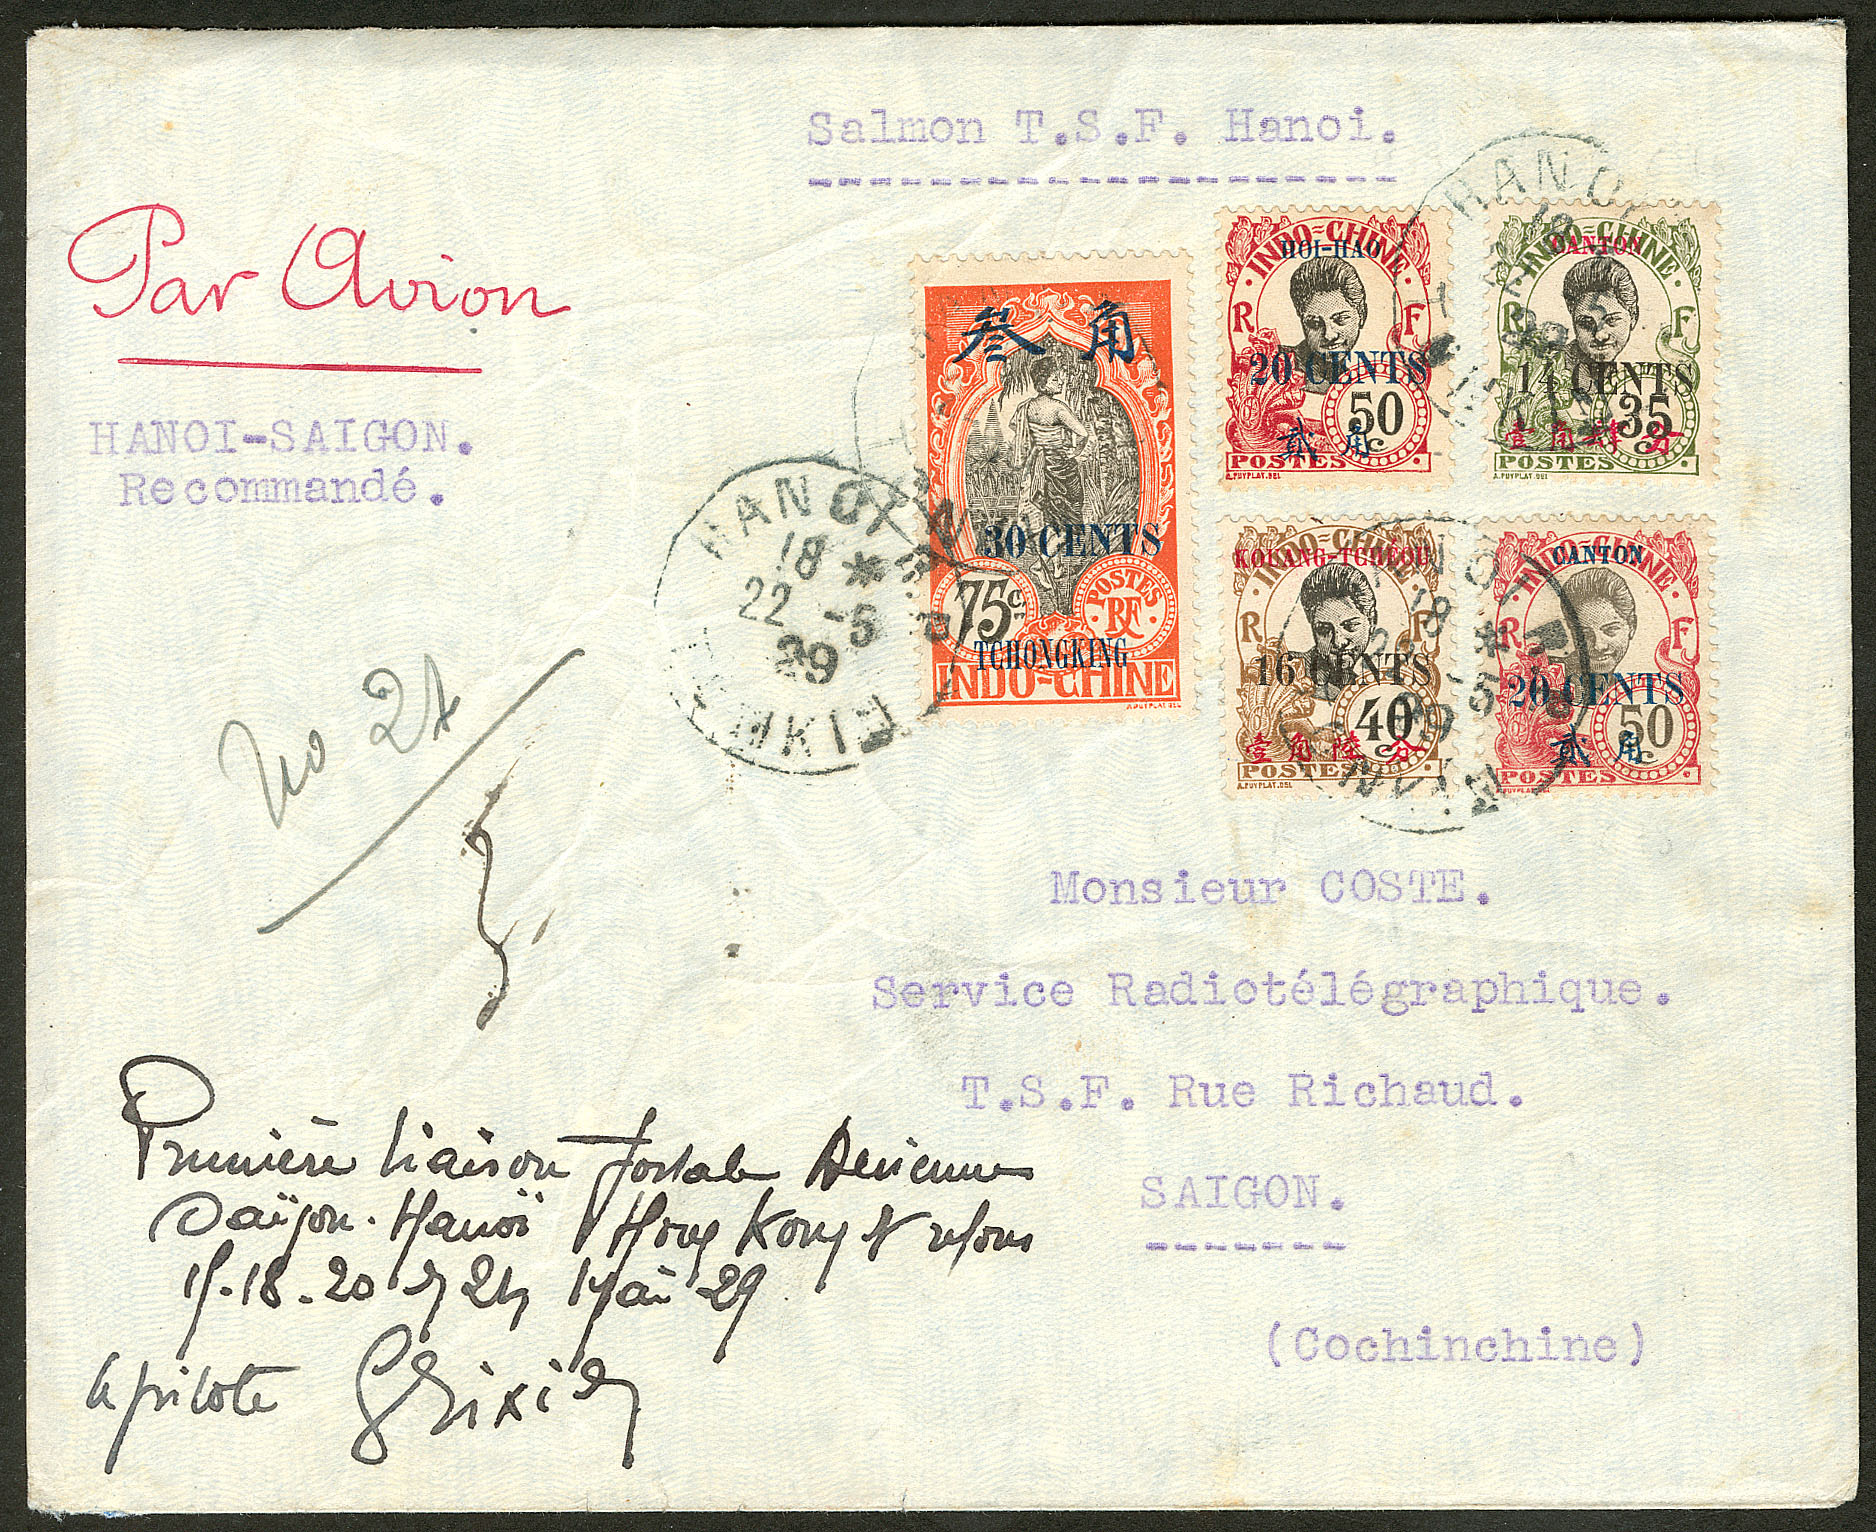 Salmon T.S.F. Hanoi.
Par Avion
HANOI-SAIGON.
Recommandé.
No 24
叁 角
30 CENTS
75 c.
POSTES
RF
TCHONGKING
INDO-CHINE
A.PUYPLAT.DEL
INDO-CHINE
HOI-HAO
R F
20 CENTS
50 c.
貳 角
POSTES
A.PUYPLAT.DEL
INDO-CHINE
CANTON
R F
14 CENTS
35 c.
壹 角 肆 分
POSTES
A.PUYPLAT.DEL
INDO-CHINE
KOUANG-TCHÉOU
R F
16 CENTS
40 c.
壹 角 陸 分
POSTES
A.PUYPLAT.DEL
INDO-CHINE
CANTON
R F
20 CENTS
50 c.
貳 角
POSTES
A.PUYPLAT.DEL
HANOI
18
22 -5
29
TONKIN
HANOI
18
HANOI
18
-5
Monsieur COSTE.
Service Radiotélégraphique.
T.S.F. Rue Richaud.
SAIGON.
(Cochinchine)
Première liaison Postale Aérienne
Saïgon. Hanoï Hong Kong & retour
18 . 20 24 Mai 29
le pilote